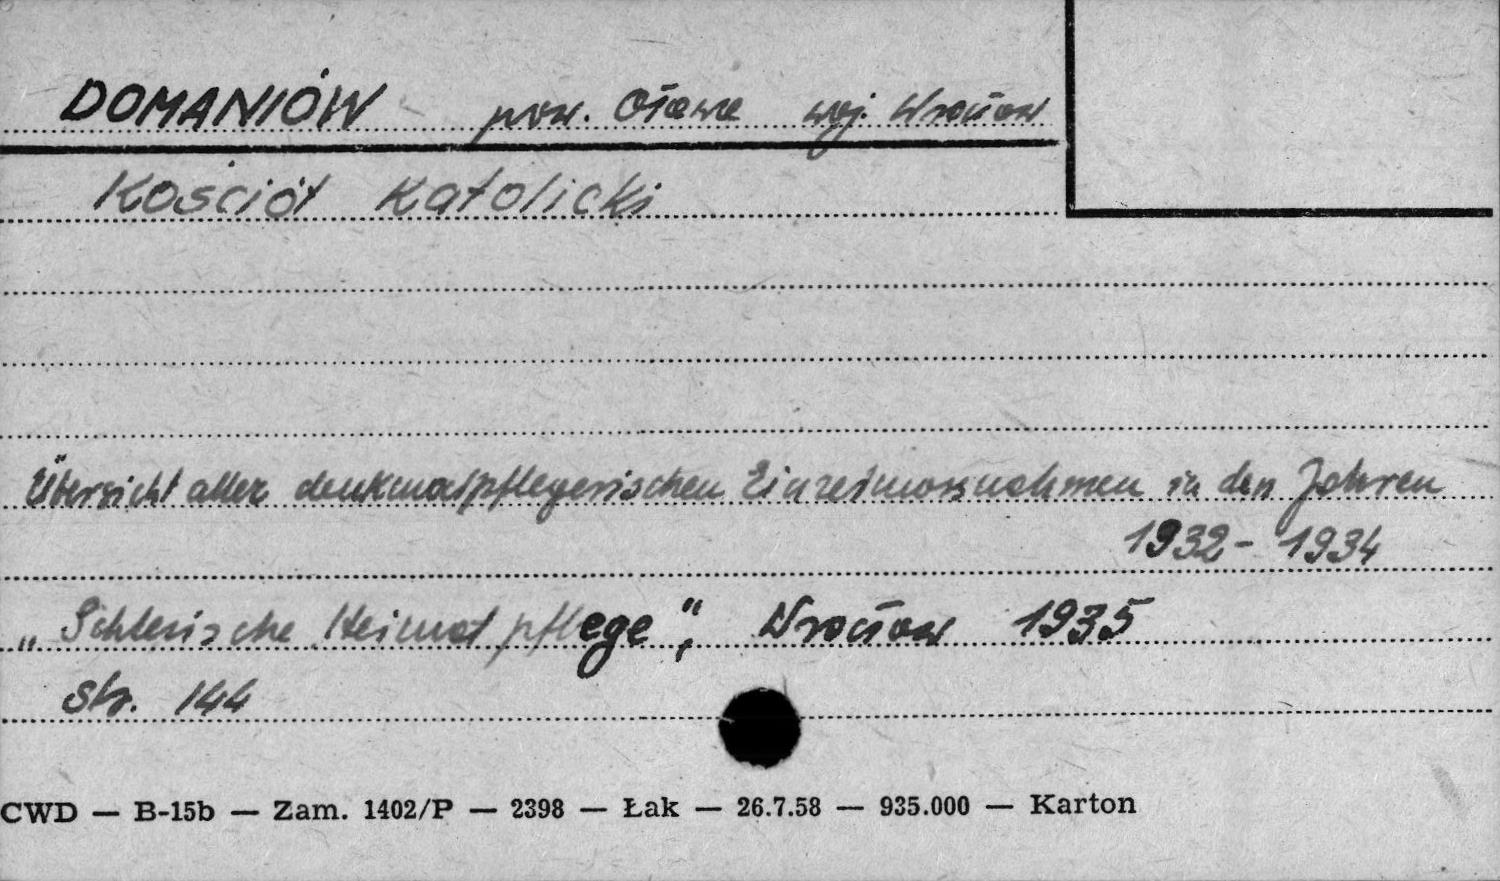 DOMANIÓW pow. Oława woj. Wrocław
Kościół Katolicki
Übersicht aller denkmalpflegerischen Einzelmassnahmen in den Jahren
1932 - 1934
„Schlesische Heimatpflege", Wrocław 1935
str. 144
CWD — B-15b — Zam. 1402/P — 2398 — Łak — 26.7.58 — 935.000 — Karton